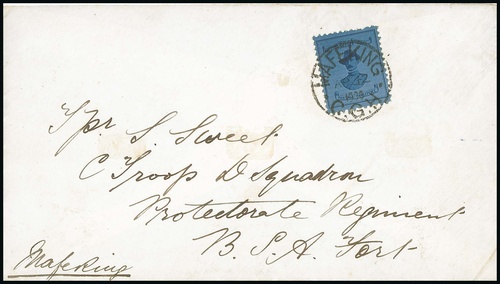 MAFEKING
C.G.H
Tpr. S. Sweet
C Troop D Squadron
Protectorate Regiment
B. S. A. Fort
Mafeking